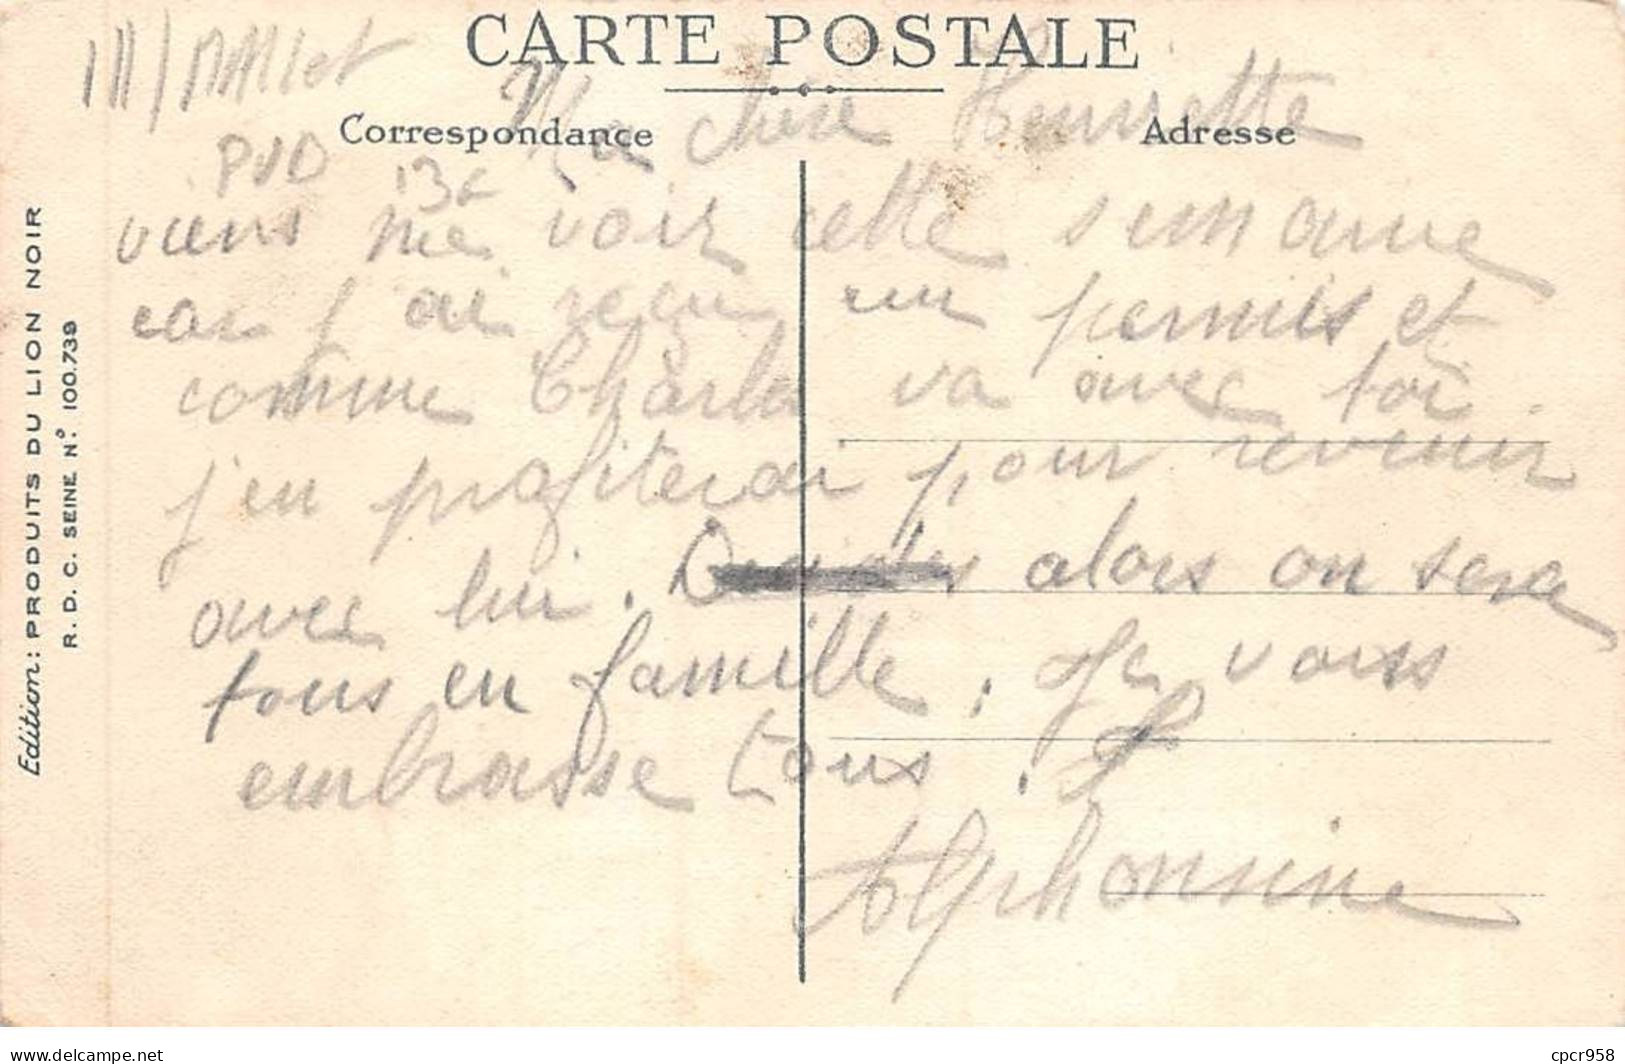 CARTE POSTALE
Correspondance
Adresse
PUD
13c
Ma chère Henriette
viens me voir cette semaine
car j'ai reçu un permis et
comme Charles va avec toi
j'en profiterai pour revenir
avec lui. alors on sera
tous en famille. Je vous
embrasse tous.
Alphonsine
Edition: PRODUITS DU LION NOIR
R. D. C. SEINE N.° 100.739
delcampe.net
cpcr958